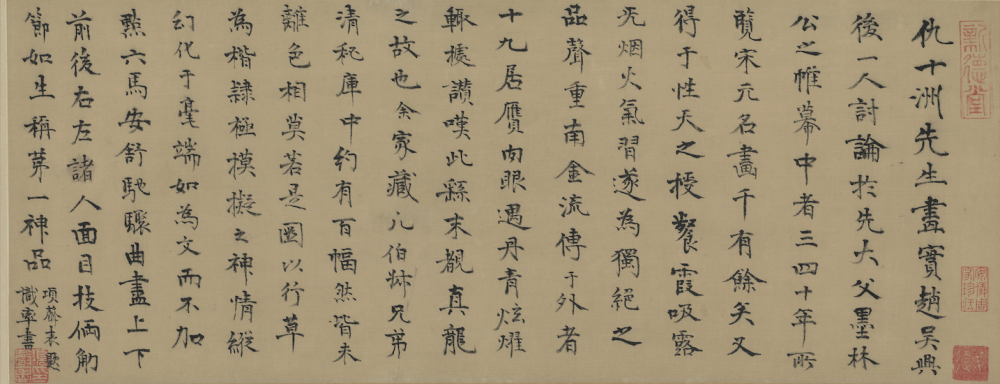 仇十洲先生畫實趙吳興
後一人討論於先大父墨林
公之帷幕中者三四十年所
覽宋元名畫千有餘矣又
得于性天之授餐霞吸露
无烟火氣習遂為獨絕之
品聲重南金流傳于外者
十九居贋向眼遇丹青炫燿
輒摟讚嘆此繇未覩真龍
之故也余家藏凡伯姊兄弟
清秘庫中約有百幅然皆未
離色相莫若是圖以行草
為楷隸極模擬之神情縱
幻化于毫端如為文而不加
點六馬安舒馳驟曲盡上下
前後右左諸人面目技倆觔
節如生稱苐一神品
項聲表題
識率書
新德堂